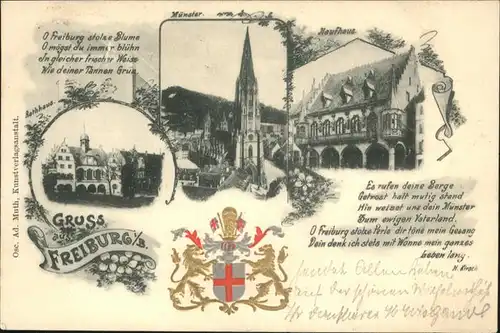 O Freiburg stolze Blume
O mögst du immer blühn
In gleicher frischer Weise
Wie deiner Tannen Grün
Münster
Kaufhaus
Rathhaus
Osc. Ad. Muth, Kunstverlagsanstalt.
GRUSS
aus
FREIBURG i/B.
Es rufen deine Berge
Getrost halt mutig stand
Hin weisst uns dein Münster
Zum ewigen Vaterland.
O Freiburg stolze Perle dir töne mein Gesang
Dein denk ich stets mit Wonne mein ganzes
Leben lang.
sendet Allen Lieben
aus der schönen